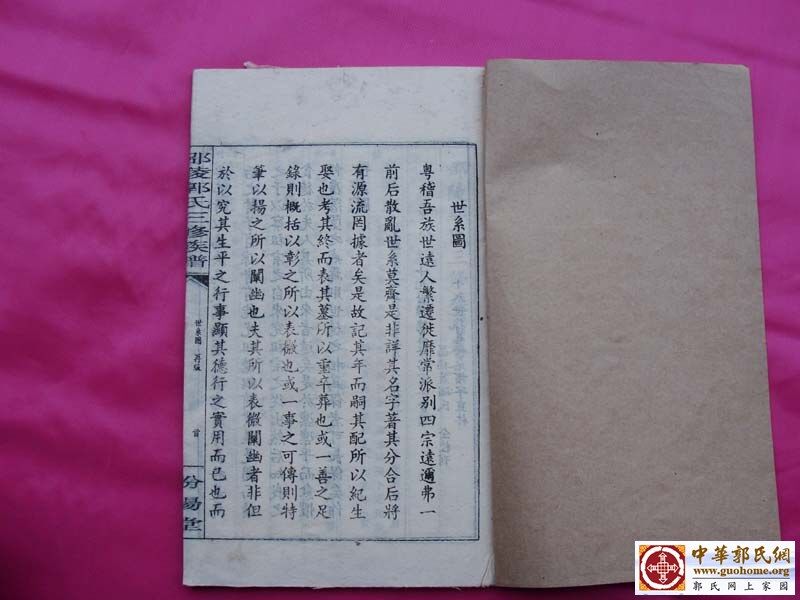 世系圖
粵稽吾族世遠人繁遷徙靡常派別四宗遠邇弗一
前后散亂世系莫齊是非詳其名字著其分合后將
有源流罔據者矣是故記其年而嗣其配所以紀生
娶也考其終而表其墓所以重卒葬也或一善之足
錄則概括以彰之所以表微也或一事之可傳則特
筆以揚之所以闡幽也夫其所以表微闡幽者非但
於以究其生平之行事顯其德行之實用而已也而
邵陵郭氏三修族譜
世系圖
首
汾陽堂
中華郭氏網
www.guohome.org
郭氏网上家园